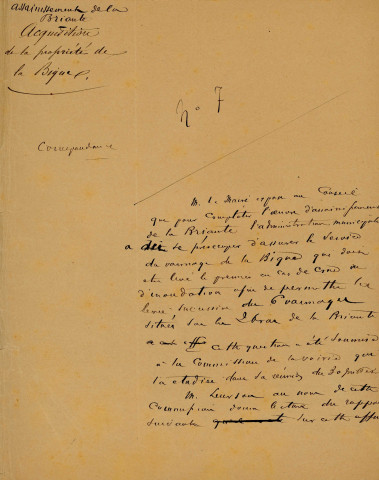 Assainissement de la
Briante
Acquisition
de la propriété de
la Bigne
N° 7
Correspondance
M. le Maire expose au Conseil
que pour compléter l'œuvre d'assainissement
de la Briante l'administration municipale
a dû se préoccuper d'assurer le service
du vannage de la Bigne qui doit
être levé le premier en cas de crue et
d'inondation afin de permettre la
levée successive des 6 vannages
situés sur les 2 bras de la Briante
cette question a été soumise
à la Commission de la voirie qui
l'a étudiée dans sa réunion du 30 juillet
M. au nom de cette
Commission donne lecture du rapport
suivant sur cette affaire